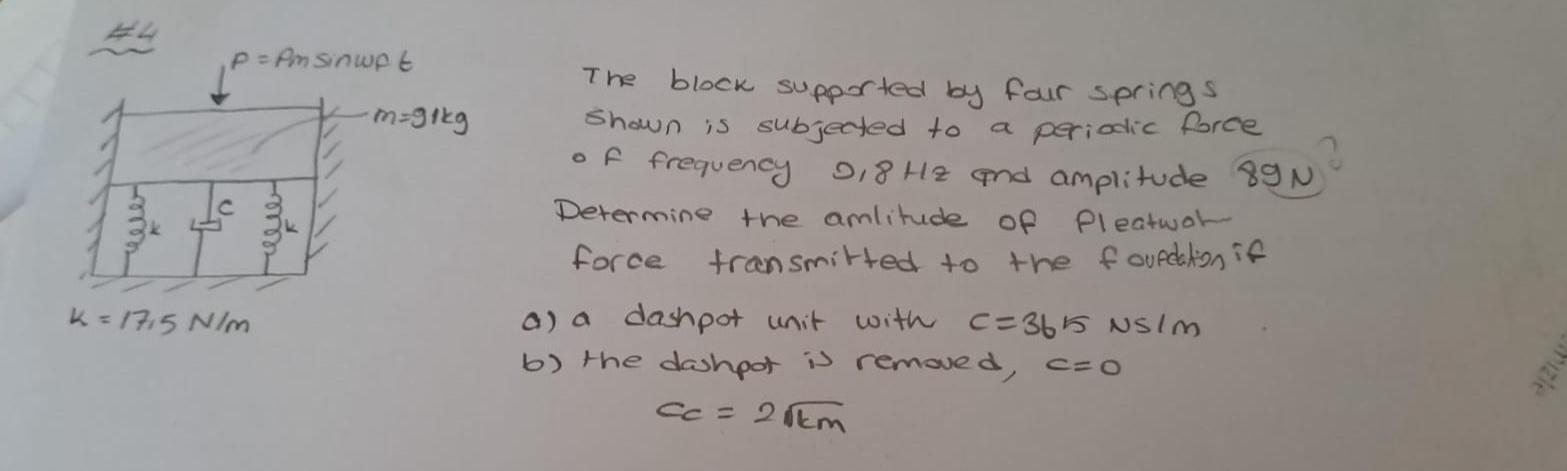 #4
P = Pm sin wf t
m=91kg
c
k
k
K = 17,5 N/m
The block supported by four springs
shown is subjected to a periodic force
of frequency 0,8 Hz and amplitude 89N ?
Determine the amlitude of
force transmitted to the foundation if
a) a dashpot unit with c=365 NS/m
b) the dashpot is removed, c=0
Cc = 2√km